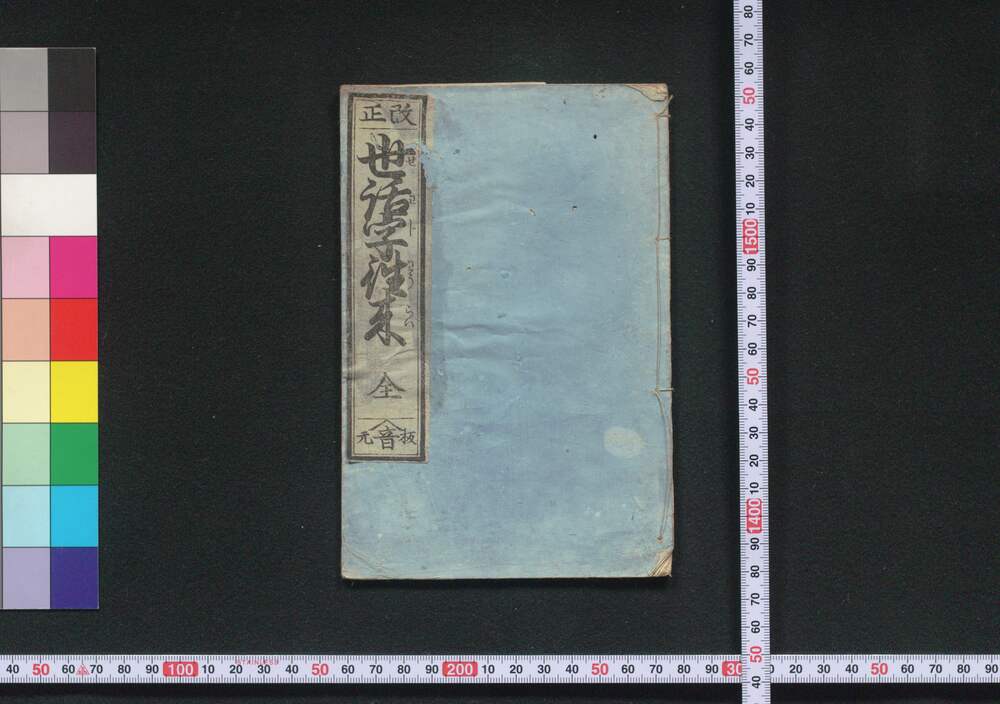 改正
世話字往来
全
板元
音
80 70 60 50 40 30 20 10 1500 90 80 70 60 50 40 30 20 10 1400 90 80 70 60 50 40
40 50 60 70 80 90 100 10 20 30 40 50 60 70 80 90 200 10 20 30 40 50 60 70 80 90 30 20 30 40 50 60 70 80 90